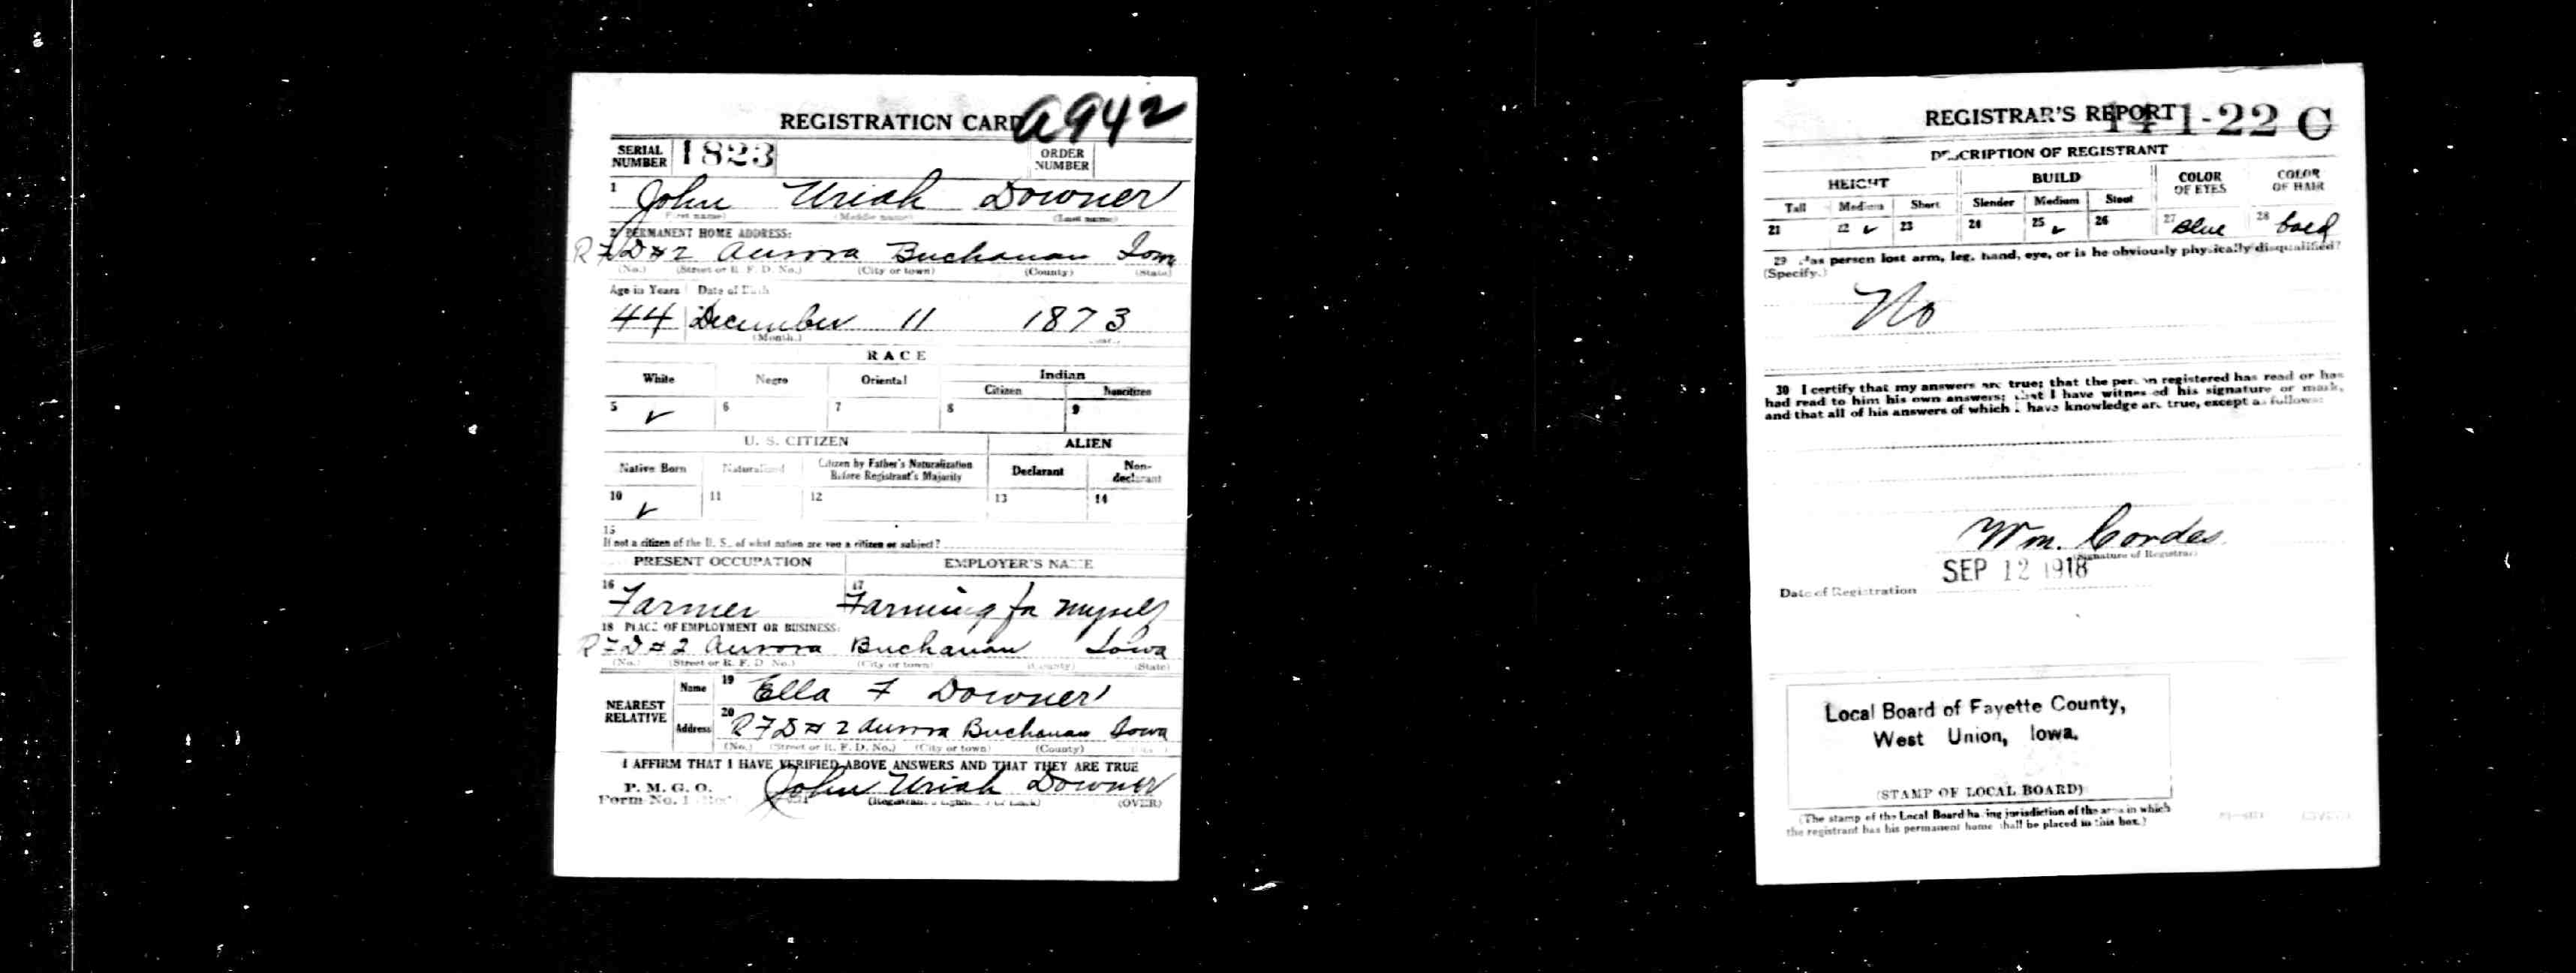 REGISTRATION CARD A942
SERIAL NUMBER 1823 ORDER NUMBER
1 John Uriah Downer
(First name) (Middle name) (Last name)
2 PERMANENT HOME ADDRESS:
RFD#2 Aurora Buchanan Iowa
(No.) (Street or R. F. D. No.) (City or town) (County) (State)
Age in Years Date of Birth
44 December 11 1873
(Month.)
RACE
White Negro Oriental Indian
Citizen Noncitizen
5 ✓ 6 7 8 9
U. S. CITIZEN ALIEN
Native Born Naturalized Citizen by Father's Naturalization Before Registrant's Majority Declarant Non-declarant
10 ✓ 11 12 13 14
15
If not a citizen of the U. S., of what nation are you a citizen or subject?
PRESENT OCCUPATION EMPLOYER'S NAME
16 Farmer 17 Farming for myself
18 PLACE OF EMPLOYMENT OR BUSINESS:
RFD#2 Aurora Buchanan Iowa
(No.) (Street or R. F. D. No.) (City or town) (County) (State)
NEAREST RELATIVE Name 19 Ella F Downer
Address 20 RFD#2 Aurora Buchanan Iowa
(No.) (Street or R. F. D. No.) (City or town) (County)
I AFFIRM THAT I HAVE VERIFIED ABOVE ANSWERS AND THAT THEY ARE TRUE
P. M. G. O.
Form No. 1 (Red) John Uriah Downer
(OVER)
REGISTRAR'S REPORT 141-22 C
DESCRIPTION OF REGISTRANT
HEIGHT BUILD COLOR OF EYES COLOR OF HAIR
Tall Medium Short Slender Medium Stout
21 22 ✓ 23 24 25 ✓ 26 27 Blue 28 bald
29 Has person lost arm, leg, hand, eye, or is he obviously physically disqualified?
(Specify.)
No
30 I certify that my answers are true; that the person registered has read or has
had read to him his own answers; that I have witnessed his signature or mark,
and that all of his answers of which I have knowledge are true, except as follows:
Wm. Cordes
(Signature of Registrar)
Date of Registration SEP 12 1918
Local Board of Fayette County,
West Union, Iowa.
(STAMP OF LOCAL BOARD)
(The stamp of the Local Board having jurisdiction of the area in which
the registrant has his permanent home shall be placed in this box.)